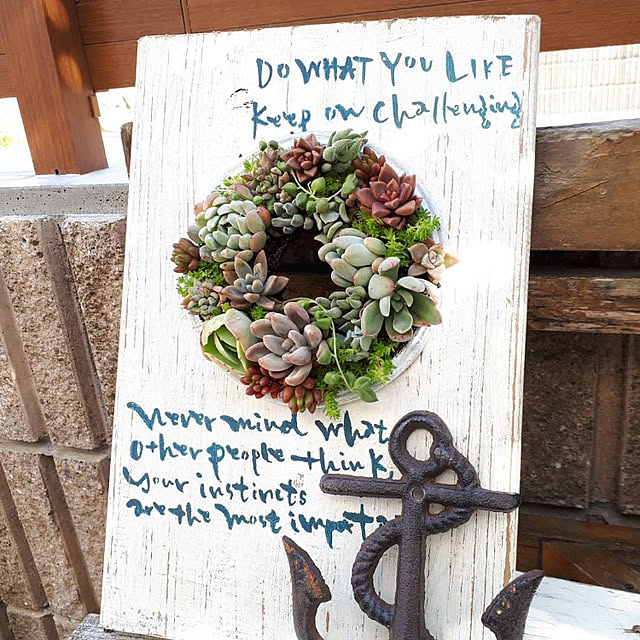 Do WHAT You LIKE
Keep on challenging
Never mind what
other people think,
your instincts
are the most importa